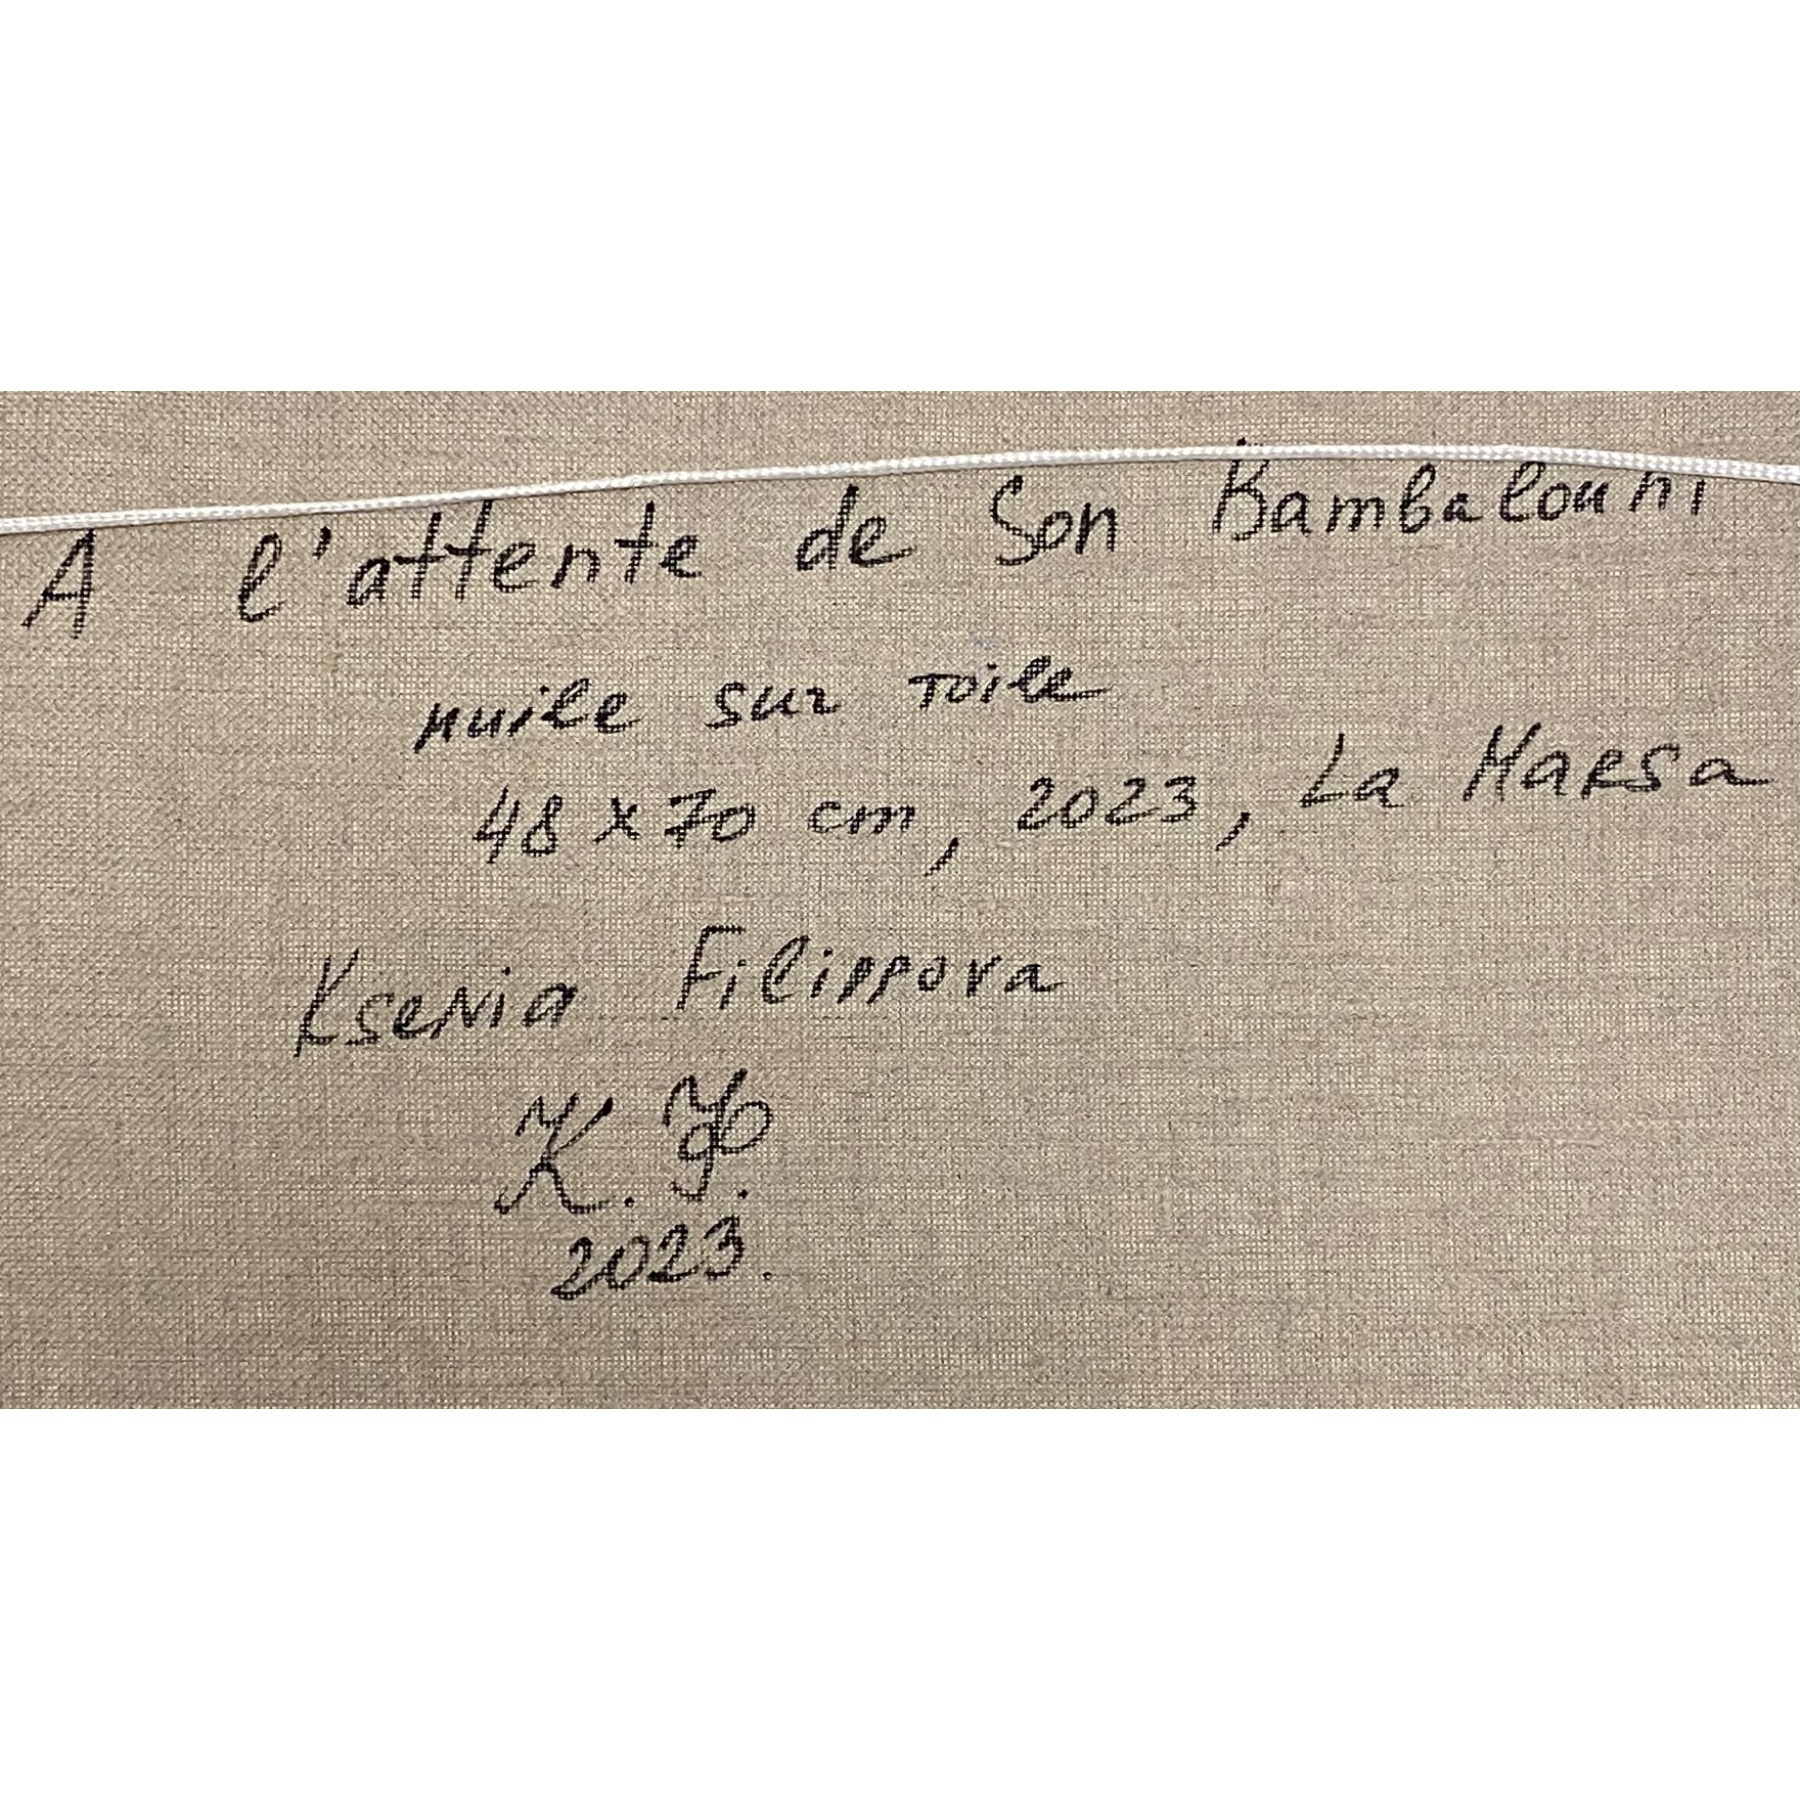 A l'attente de Son Bambalouni
Huile sur toile
48 x 70 cm, 2023, La Marsa
Ksenia Filippova
K. F.
2023.